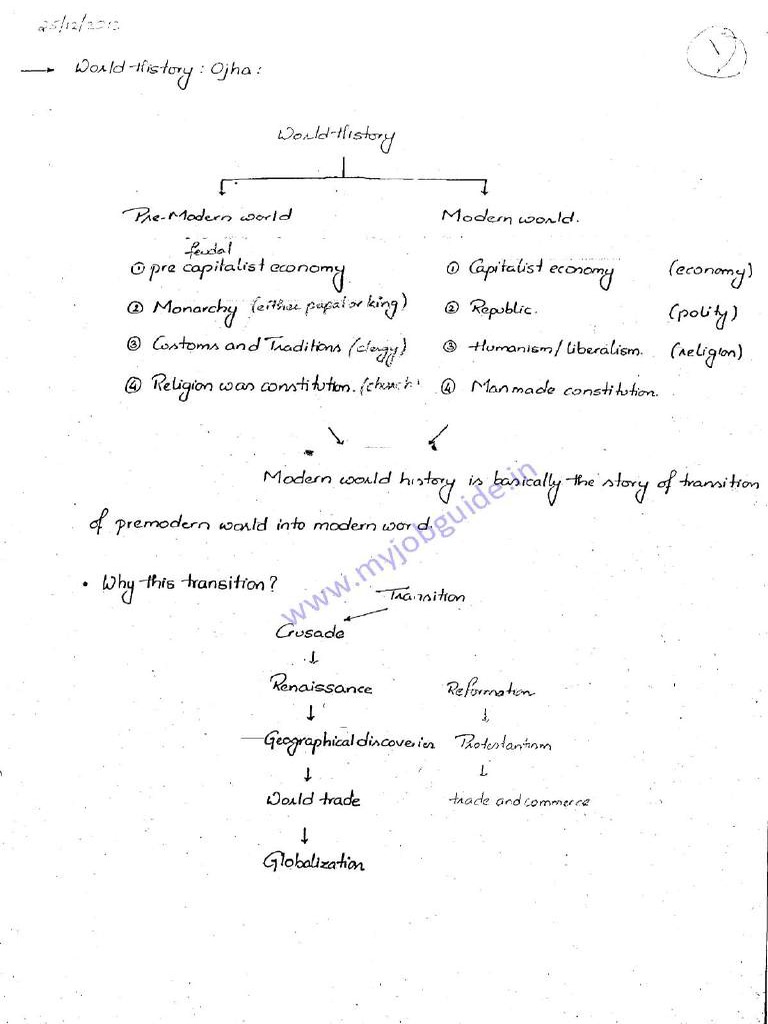 25/12/2012
1
→ World-History : Ojha :
World-History
Pre-Modern world
Modern world.
feudal
① pre capitalist economy
① Capitalist economy (economy)
② Monarchy (either papal or king)
② Republic. (polity)
③ Customs and Traditions (clergy)
③ Humanism/liberalism. (religion)
④ Religion was constitution. (church
④ Manmade constitution.
Modern world history is basically the story of transition
of premodern world into modern world.
www.myjobguide.in
• Why this transition?
Transition
Crusade
↓
Renaissance
Reformation
↓
↓
Geographical discoveries
Protestantism
↓
↓
World trade
trade and commerce
↓
Globalization